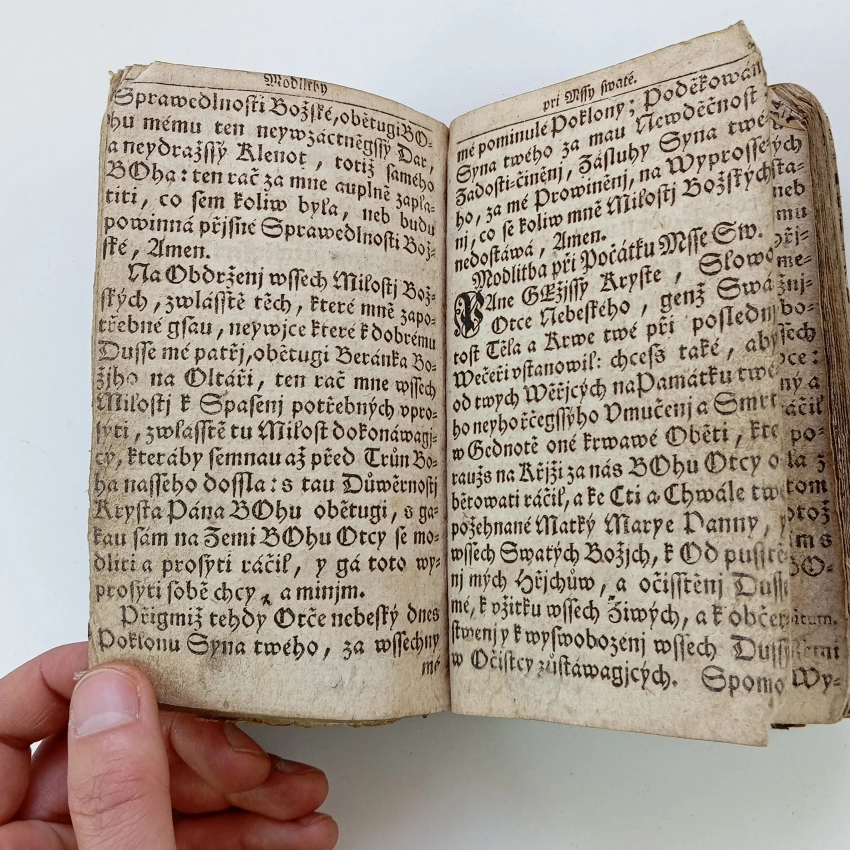 Modlitby
Sprawedlnosti Božské, obětugi BO-
hu mému ten neywzáctněgssý Dar,
a neydražssý Klenot, totiž samého
BOha: ten rač za mne auplně zapla-
titi, co sem koliw byla, neb budu
powinná přjsné Sprawedlnosti Bož-
ské, Amen.
Na Obdrženj wssech Milostj Bož-
ských, zwlásstě těch, které mně zapo-
třebné gsau, neywjce které k dobrému
Dusse mé patřj, obětugi Beránka Bo-
žjho na Oltáři, ten rač mne wssech
Milostj k Spasenj potřebných vpro-
syti, zwlásstě tu Milost dokonáwagj-
cý, kteráby semnau až před Trůn Bo-
ha nasseho dossla: s tau Důwěrnostj
Krysta Pána BOhu obětugi, s ga-
kau sám na Zemi BOhu Otcy se mo-
dliti a prosyti ráčil, y gá toto wy-
prosyti sobě chcy, a minjm.
Přigmiž tehdy Otče nebeský dnes
Poklonu Syna twého, za wssechny
mé
při Mssy swaté.
mé pominulé Poklony; Poděkowán
Syna twého za mau Newděčnost
Zadosti-činěnj, Zásluhy Syna twé
ho, za mé Prowiněnj, na Wyprosse
nj, co se koliw mně Milostj Božských
nedostáwá, Amen.
Modlitba při Počátku Msse Sw.
PAne GEžjssy Kryste, Slowo
Otce Nebeského, genž Swá
tost Těla a Krwe twé při poslednj
Wečeři vstanowil: chcess také, aby
od twých Wěřjcých na Památku twé
ho neyhořčegssýho Vmučenj a Smrt
w Gednotě oné krwawé Oběti, kte
raužs na Křjži za nás BOhu Otcy o
bětowati ráčil, a ke Cti a Chwále tw
požehnané Matky Marye Panny,
wssech Swatých Božjch, k Od pusstě
nj mých Hřjchůw, a očisstěnj Duss
mé, k vžitku wssech Žiwých, a k obče
stwenj y k wyswobozenj wssech Duss
w Očistcy zůstáwagjcých. Spomo
Wy-